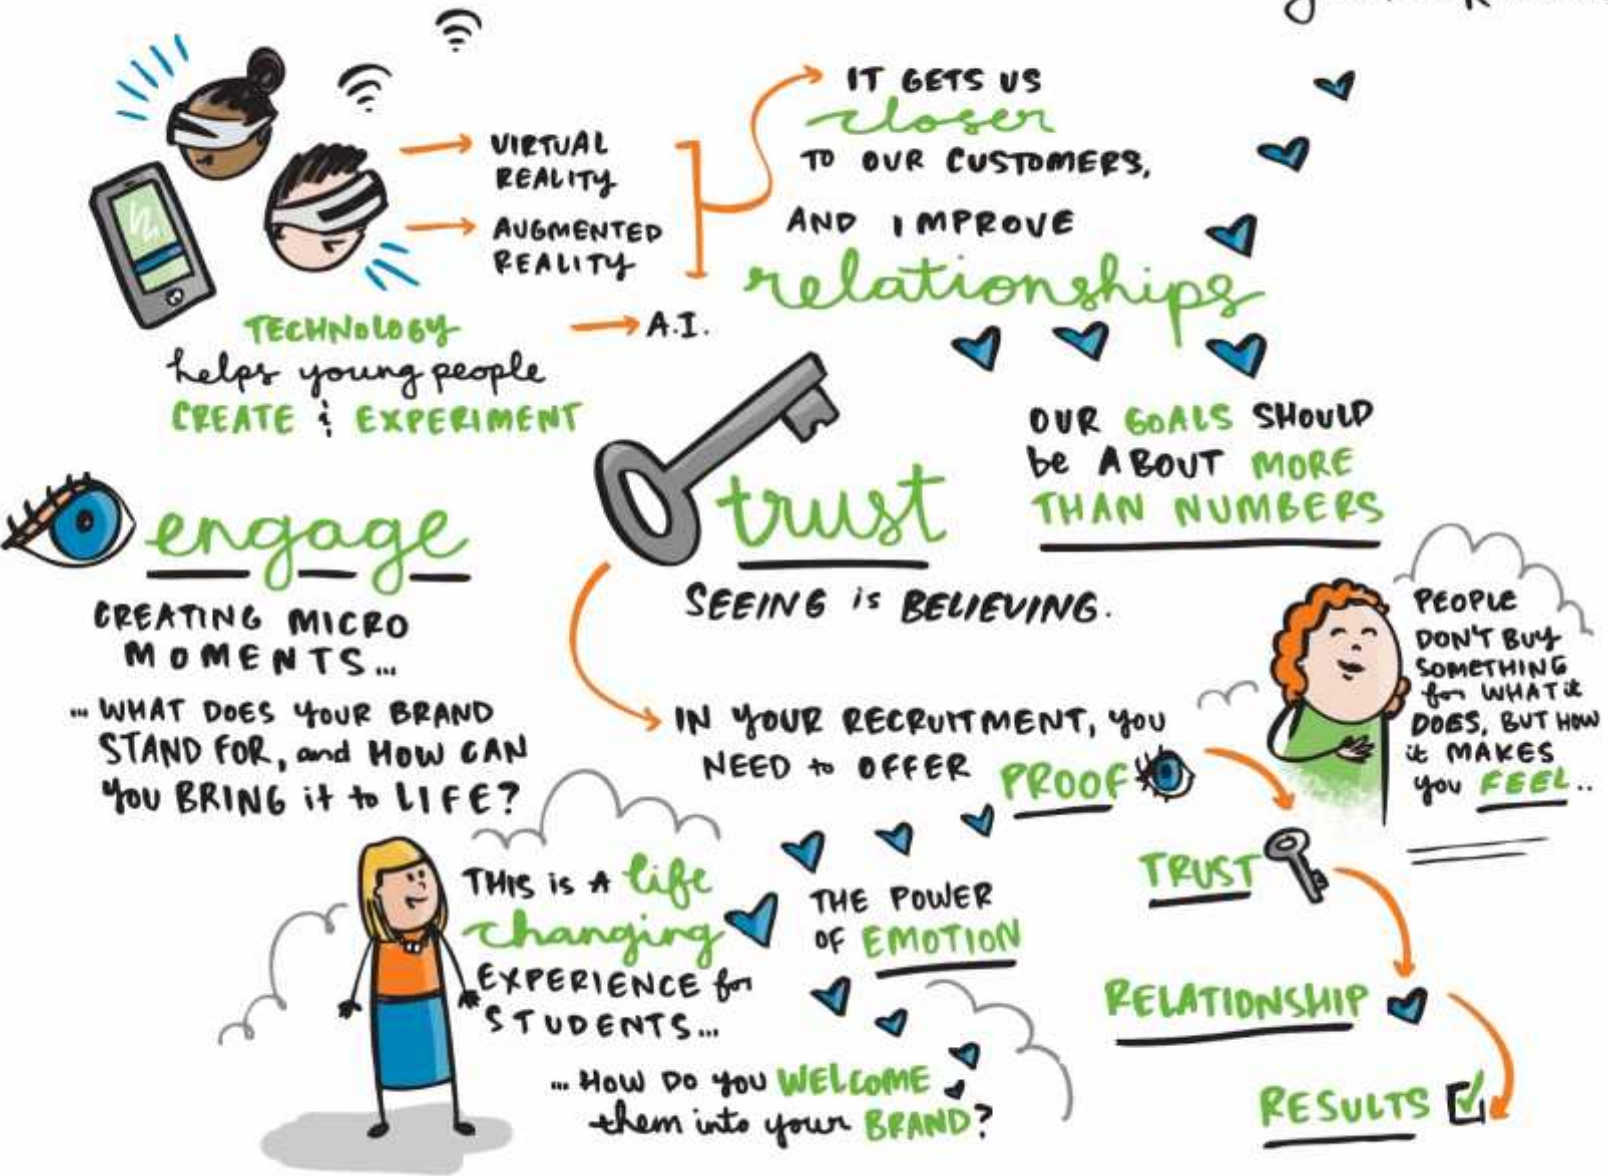 VIRTUAL
REALITY
AUGMENTED
REALITY
A.I.
TECHNOLOGY
helps young people
CREATE & EXPERIMENT
IT GETS US
closer
TO OUR CUSTOMERS,
AND IMPROVE
relationships
OUR GOALS SHOULD
be ABOUT MORE
THAN NUMBERS
engage
CREATING MICRO
MOMENTS...
... WHAT DOES YOUR BRAND
STAND FOR, and HOW CAN
YOU BRING it to LIFE?
trust
SEEING is BELIEVING.
IN YOUR RECRUITMENT, YOU
NEED to OFFER PROOF
PEOPLE
DON'T BUY
SOMETHING
for WHAT it
DOES, BUT HOW
it MAKES
you FEEL..
TRUST
RELATIONSHIP
RESULTS
THIS is A life
changing
EXPERIENCE for
STUDENTS...
... HOW DO you WELCOME
them into your BRAND?
THE POWER
OF EMOTION